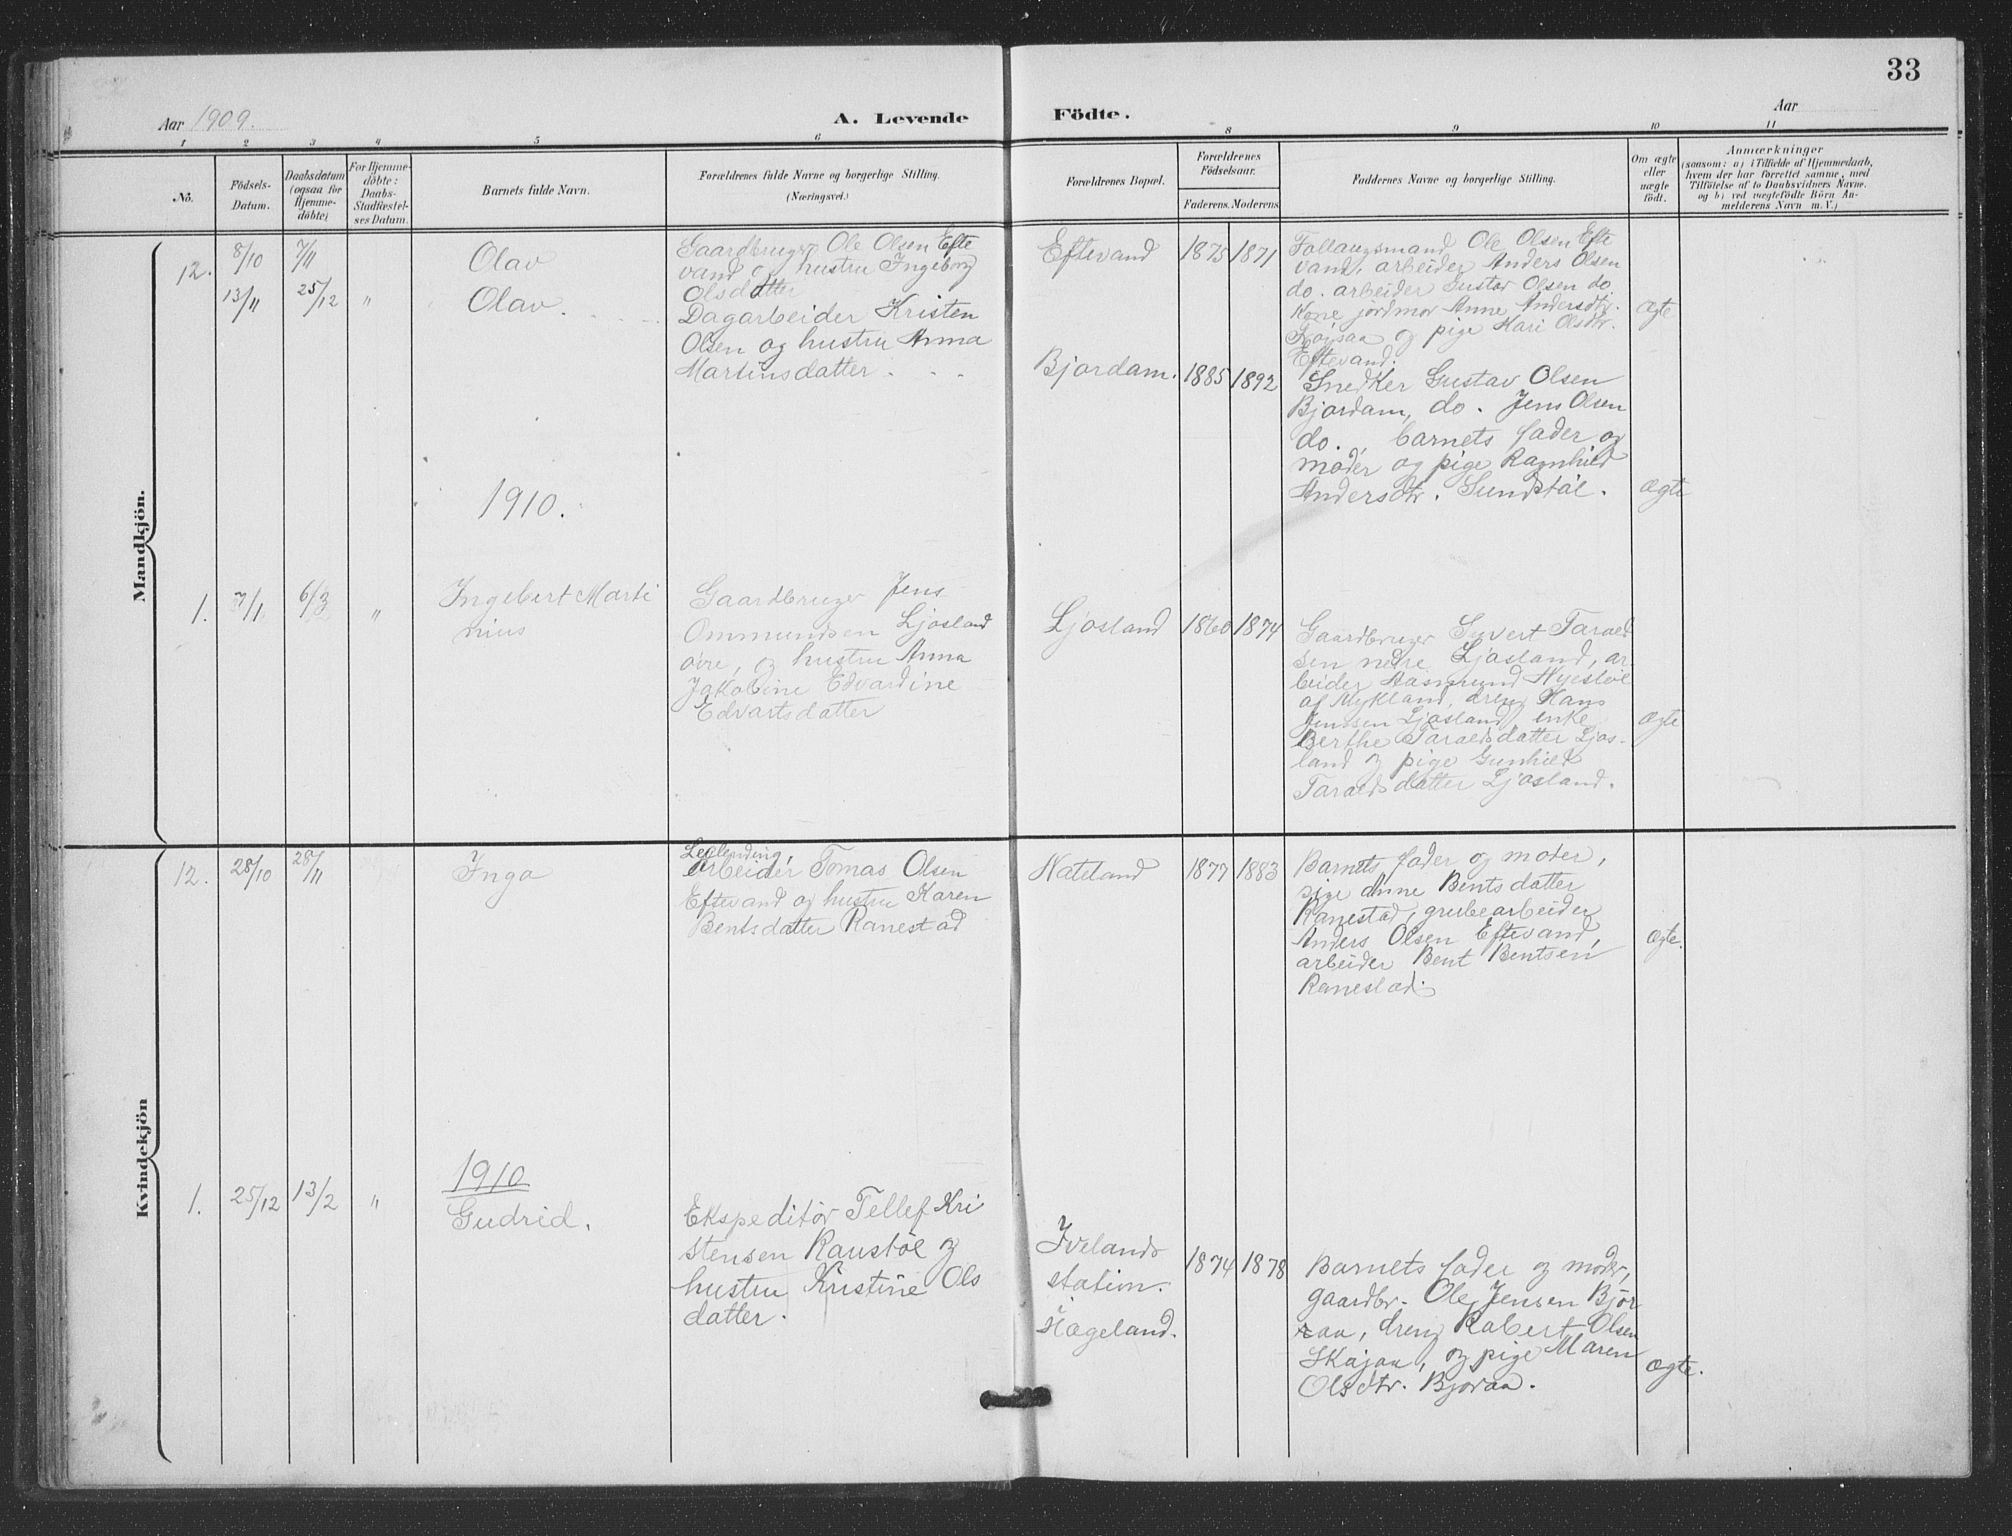 33
Aar 1909. A. Levende Födte. Aar
1 2 3 4 5 6 8 9 10 11
No.
Födsels-
Datum.
Daabsdatum
(ogsaa for
Hjemme-
döbte)
For Hjemme-
döbte:
Daabs-
Stadfæstel-
ses Datum.
Barnets fulde Navn.
Forældrenes fulde Navne og borgerlige Stilling.
(Næringsvei.)
Forældrenes Bopæl.
Forældrenes
Födselsaar.
Faderens. Moderens
Faddernes Navne og borgerlige Stilling.
Om ægte
eller
uægte
födt.
Anmærkninger
(saasom: a) i Tilfælde af Hjemmedaab,
hvem der har forrettet samme, med
Tilföielse af to Daabsvidners Navne.
og b) ved uægtefödte Börn An-
melderens Navn m. V.)
Mandkjön.
12. 8/10 7/11
Olav
Gaardbruger Ole Olsen Efte
vand og hustru Ingeborg
Olsdatter
Eftevand 1875 1871
Ole Olsen Efte
vand, arbeider Anders Olsen
do. arbeider Gustav Olsen do.
Kone jordmor Anne Andersdtr.
og pige Kari Olsdtr.
Eftevand.
Ægte
13/11 25/12 "
Olav.
Dagarbeider Kristen
Olsen og hustru Anna
Martinsdatter.
Bjordam. 1885 1892
Snedker Gustav Olsen
Bjordam, do. Jens Olsen
do., barnets fader og
moder og pige Ragnhild
Andersdtr. Sundstöl.
Ægte
1910.
1. 7/1 6/3 "
Ingebert Marti
nius
Gaardbruger Jens
Ommundsen Ljosland
övre, og hustru Anna
Jakobine Edvardine
Edvartsdatter
Ljosland 1860 1874
Gaardbruger Syvert Tarald
sen nedre Ljosland, ar
beider Aasmund Nyestöl
af Mykland, dreng Hans
Jenssen Ljosland, enke
Berthe Taraldsdatter Ljos-
land og pige Gunhild
Taraldsdatter Ljosland.
Ægte
Kvindekjön
12. 28/10 28/11
Inga
Leilending,
arbeider Tomas Olsen
Eftevand og hustru Karen
Bentsdatter Ranestad
Nateland 1877 1883
Barnets fader og moder,
pige Anne Bentsdatter
Ranestad, grubearbeider
Anders Olsen Eftevand,
arbeider Bent Bentsen
Ranestad.
Ægte.
1910
1. 25/12 13/2 "
Gudrid.
Ekspeditör Tellef Kri
stensen Raustöl og
hustru Kristine Ols
datter.
Ivelands
station.
Hægeland.
1874 1878
Barnets fader og moder,
gaardbr. Ole Jensen Bjor
aa, dreng Robert Olsen
Skajaa, og pige Maren
Olsdtr. Bjoraa.
Ægte.